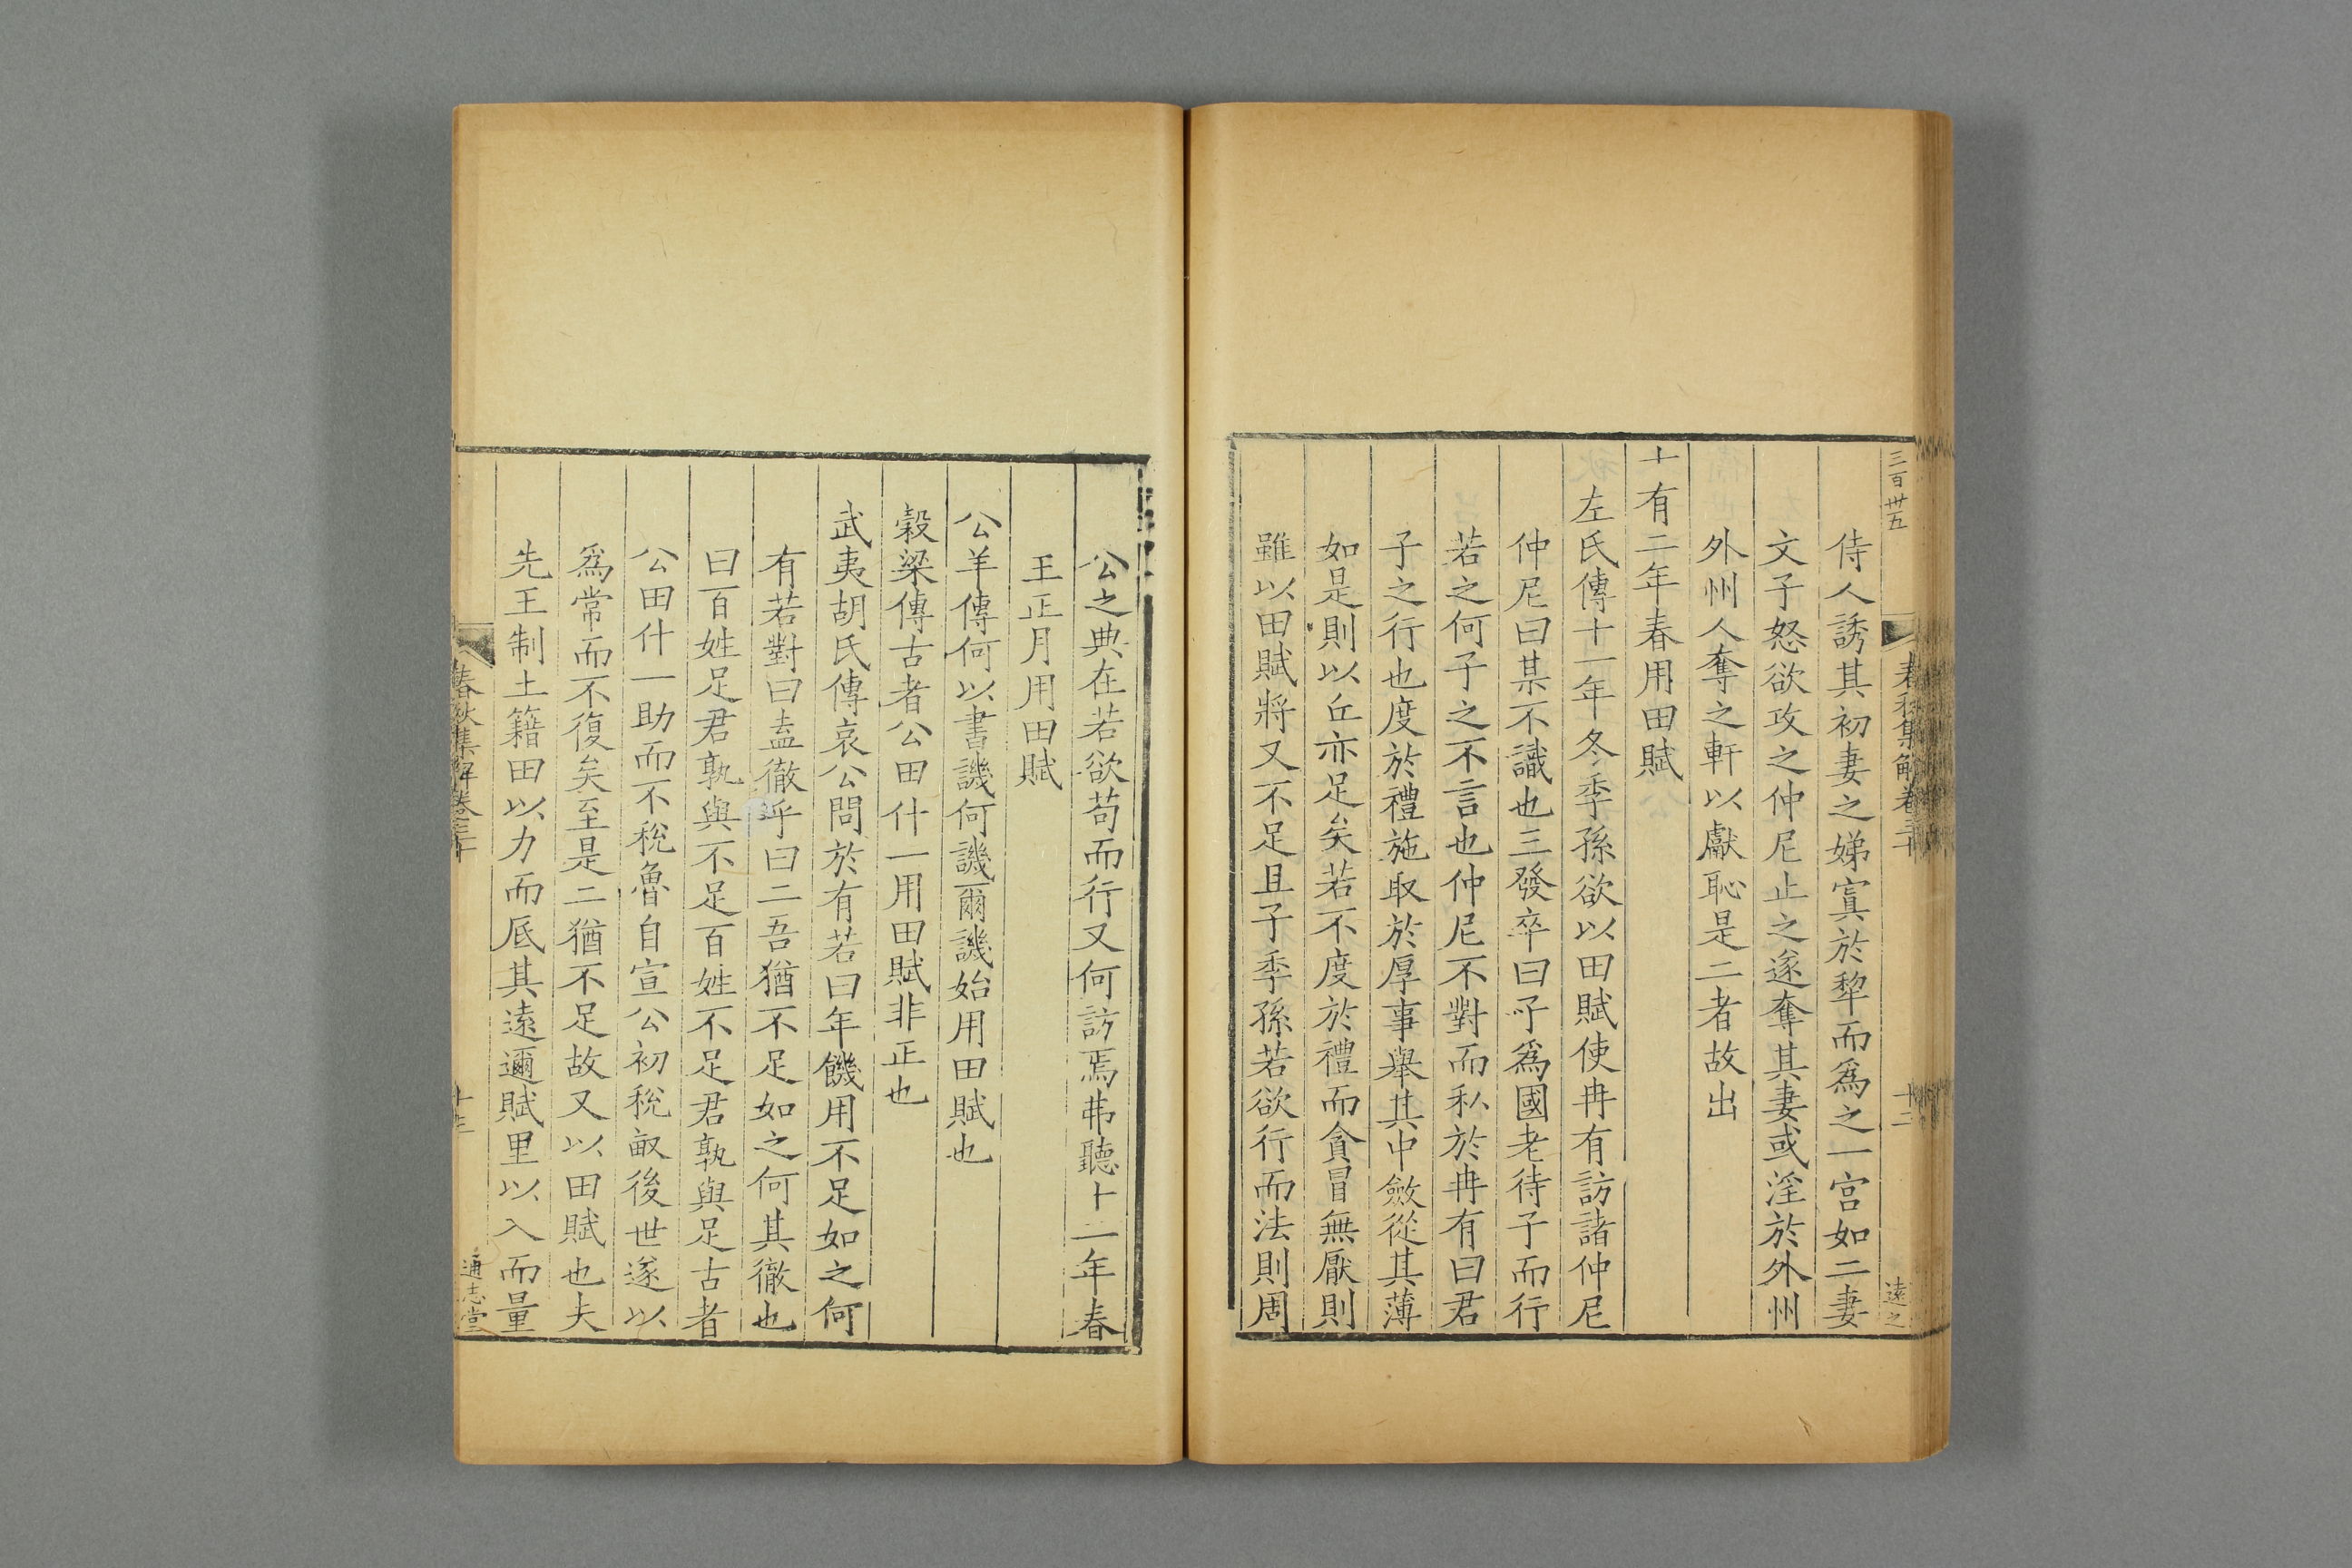 三百卅五
春秋集解卷三十
十二
遠之
侍人誘其初妻之娣寘於犂而爲之一宫如二妻
文子怒欲攻之仲尼止之遂奪其妻或淫於外州
外州人奪之軒以獻恥是二者故出
十有二年春用田賦
左氏傳十一年冬季孫欲以田賦使冉有訪諸仲尼
仲尼曰某不識也三發卒曰子爲國老待子而行
若之何子之不言也仲尼不對而私於冉有曰君
子之行也度於禮施取於厚事舉其中斂從其薄
如是則以丘亦足矣若不度於禮而貪冒無厭則
雖以田賦將又不足且子季孫若欲行而法則周
公之典在若欲苟而行又何訪焉弗聽十二年春
王正月用田賦
公羊傳何以書譏何譏爾譏始用田賦也
穀梁傳古者公田什一用田賦非正也
武夷胡氏傳哀公問於有若曰年饑用不足如之何
有若對曰盍徹乎曰二吾猶不足如之何其徹也
曰百姓足君孰與不足百姓不足君孰與足古者
公田什一助而不稅魯自宣公初稅畝後世遂以
爲常而不復矣至是二猶不足故又以田賦也夫
先王制土籍田以力而厎其遠邇賦里以入而量
春秋集解卷三十
十三
通志堂